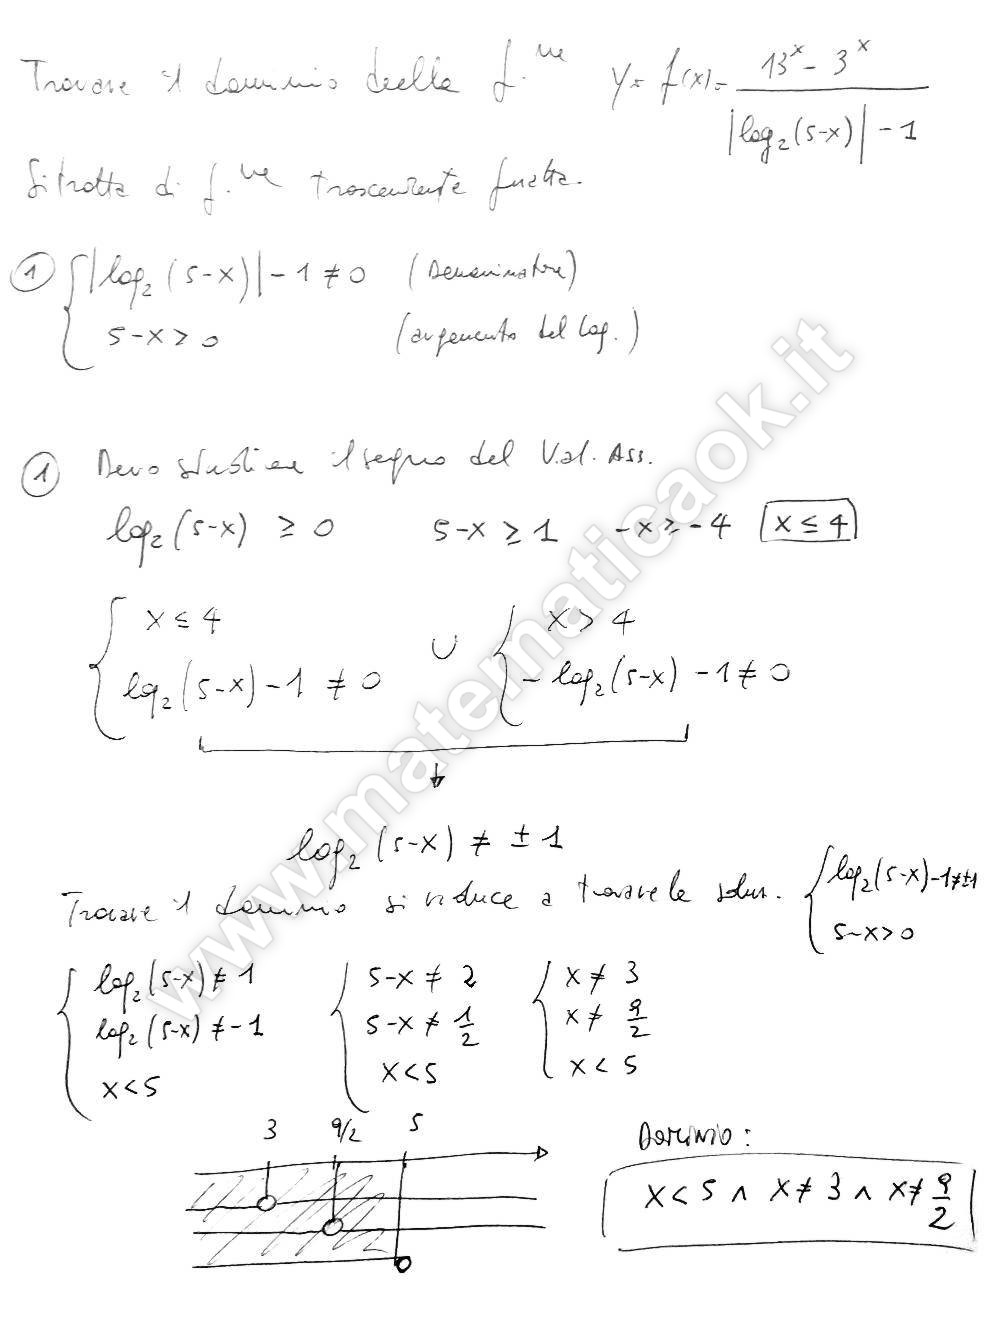 Trovare il dominio della f.ne y = f(x) = (13^x - 3^x) / (|log₂(5-x)| - 1)
Si tratta di f.ne trascendente fratta.
① { |log₂(5-x)| - 1 ≠ 0 (Denominatore)
5-x > 0 (argomento del log.)
① Devo studiare il segno del Val. Ass.
log₂(5-x) ≥ 0 5-x ≥ 1 -x ≥ -4 x ≤ 4
{ x ≤ 4 ∪ { x > 4
log₂(5-x) - 1 ≠ 0 - log₂(5-x) - 1 ≠ 0
log₂(5-x) ≠ ± 1
Trovare il dominio si riduce a trovare le soluz. { log₂(5-x) - 1 ≠ ±1
5-x > 0
{ log₂(5-x) ≠ 1 { 5-x ≠ 2 { x ≠ 3
log₂(5-x) ≠ -1 5-x ≠ 1/2 x ≠ 9/2
x < 5 x < 5 x < 5
3 9/2 5
Dominio:
x < 5 ∧ x ≠ 3 ∧ x ≠ 9/2
www.matematicaok.it